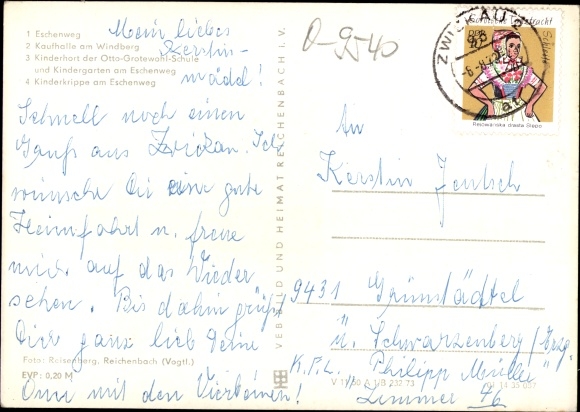 1 Eschenweg
2 Kaufhalle am Windberg
3 Kinderhort der Otto-Grotewohl-Schule
und Kindergarten am Eschenweg
4 Kinderkrippe am Eschenweg
Mein liebes
Kerstin-
mädel!
Schnell noch einen
Gruß aus Zwickau. Ich
wünsche Dir eine gute
Heimfahrt u. freue
mich auf das Wieder
sehen. Bis dahin grüßt
Dich ganz lieb Deine
Omi mit den Vierbeinen!
Foto: Raisenberg, Reichenbach (Vogtl.)
EVP: 0,20 M
VEB BILD UND HEIMAT REICHENBACH I. V.
0-9540
ZWICKAU 2
Sorbische Tanztracht
DDR
An
Kerstin Jentsch
9431 Grünstädtel
ü. Schwarzenberg/Erzg.
K.P.L. "Philipp Müller"
Zimmer 46
V 11 50 A 1/B 232 73